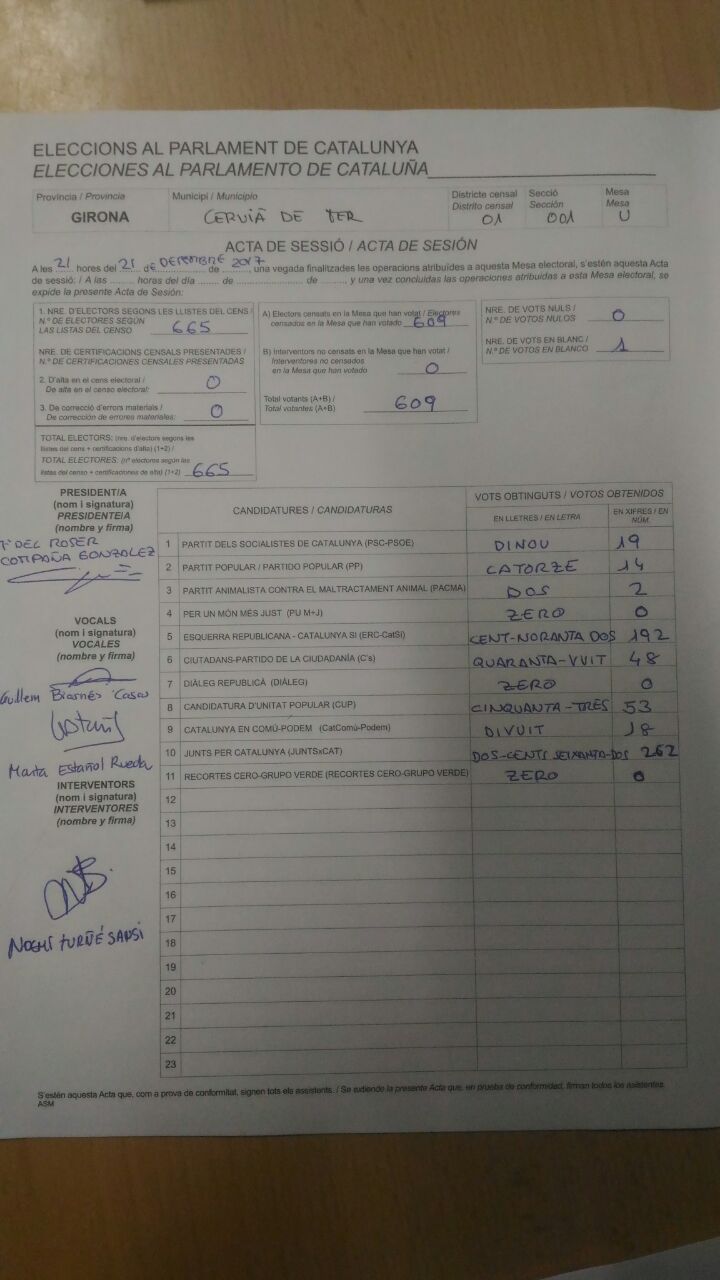 ELECCIONS AL PARLAMENT DE CATALUNYA
ELECCIONES AL PARLAMENTO DE CATALUÑA
Província / Provincia
GIRONA
Municipi / Municipio
CERVIÀ DE TER
Districte censal
Distrito censal
01
Secció
Sección
001
Mesa
Mesa
U
ACTA DE SESSIÓ / ACTA DE SESIÓN
A les 21 hores del 21 de DESEMBRE de 2017, una vegada finalitzades les operacions atribuïdes a aquesta Mesa electoral, s'estén aquesta Acta
de sessió: / A las ........ horas del día ........ de ........................ de ........, y una vez concluidas las operaciones atribuidas a esta Mesa electoral, se
expide la presente Acta de Sesión:
1. NRE. D'ELECTORS SEGONS LES LLISTES DEL CENS /
N.º DE ELECTORES SEGÚN
LAS LISTAS DEL CENSO 665
NRE. DE CERTIFICACIONS CENSALS PRESENTADES /
N.º DE CERTIFICACIONES CENSALES PRESENTADAS
2. D'alta en el cens electoral /
De alta en el censo electoral: 0
3. De correcció d'errors materials /
De corrección de errores materiales: 0
TOTAL ELECTORS: (nre. d'electors segons les
llistes del cens + certificacions d'alta) (1+2) /
TOTAL ELECTORES: (nº electores según las
listas del censo + certificaciones de alta) (1+2) 665
A) Electors censats en la Mesa que han votat / Electores
censados en la Mesa que han votado 609
B) Interventors no censats en la Mesa que han votat /
Interventores no censados
en la Mesa que han votado 0
Total votants (A+B) /
Total votantes (A+B) 609
NRE. DE VOTS NULS /
N.º DE VOTOS NULOS 0
NRE. DE VOTS EN BLANC /
N.º DE VOTOS EN BLANCO 1
PRESIDENT/A
(nom i signatura)
PRESIDENTE/A
(nombre y firma)
DEL ROSER
COMPAÑA GONZALEZ
VOCALS
(nom i signatura)
VOCALES
(nombre y firma)
Guillem Biarnés Casas
Marta Estañol Rueda
INTERVENTORS
(nom i signatura)
INTERVENTORES
(nombre y firma)
CANDIDATURES / CANDIDATURAS
VOTS OBTINGUTS / VOTOS OBTENIDOS
EN LLETRES / EN LETRA
EN XIFRES / EN NÚM.
1 PARTIT DELS SOCIALISTES DE CATALUNYA (PSC-PSOE) DINOU 19
2 PARTIT POPULAR / PARTIDO POPULAR (PP) CATORZE 14
3 PARTIT ANIMALISTA CONTRA EL MALTRACTAMENT ANIMAL (PACMA) DOS 2
4 PER UN MÓN MÉS JUST (PU M+J) ZERO 0
5 ESQUERRA REPUBLICANA - CATALUNYA SÍ (ERC-CatSí) CENT-NORANTA DOS 192
6 CIUTADANS-PARTIDO DE LA CIUDADANÍA (C's) QUARANTA-VVIT 48
7 DIÀLEG REPUBLICÀ (DIÀLEG) ZERO 0
8 CANDIDATURA D'UNITAT POPULAR (CUP) CINQUANTA-TRES 53
9 CATALUNYA EN COMÚ-PODEM (CatComú-Podem) DIVUIT 18
10 JUNTS PER CATALUNYA (JUNTSxCAT) DOS-CENTS SEIXANTA-DOS 262
11 RECORTES CERO-GRUPO VERDE (RECORTES CERO-GRUPO VERDE) ZERO 0
12
13
14
15
16
17
18
19
20
21
22
23
S'estén aquesta Acta que, com a prova de conformitat, signen tots els assistents. / Se extiende la presente Acta que, en prueba de conformidad, firman todos los asistentes.
ASM